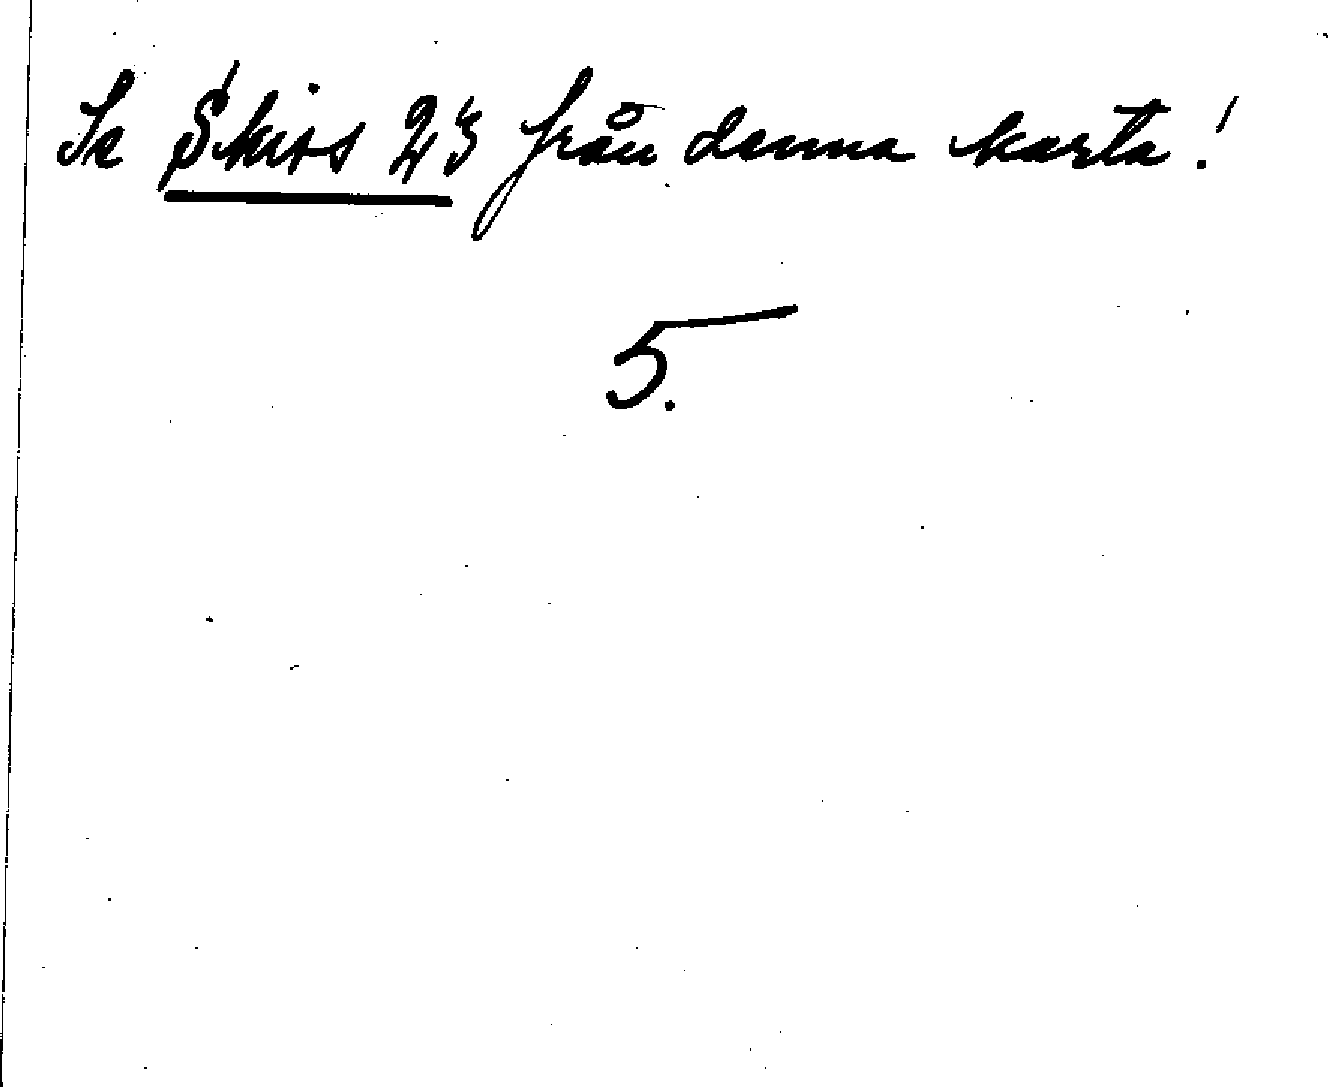 Se Skiss 23 från denna karta!
5.